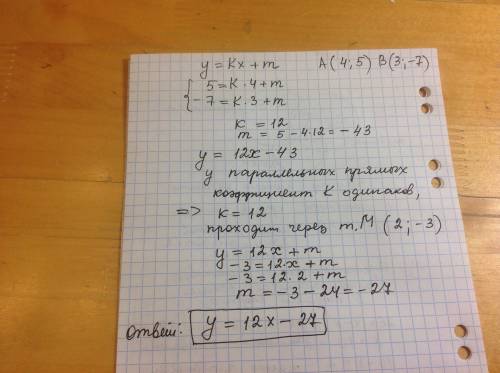 y = Kx + m   A(4;5) B(3;-7)
5 = K·4 + m
-7 = K·3 + m
K = 12
m = 5 - 4·12 = -43
y = 12x - 43
у параллельных прямых
коэффициент K одинаков,
=> K = 12
проходит через т.M (2;-3)
y = 12x + m
-3 = 12·x + m
-3 = 12·2 + m
m = -3 - 24 = -27
Ответ: y = 12x - 27